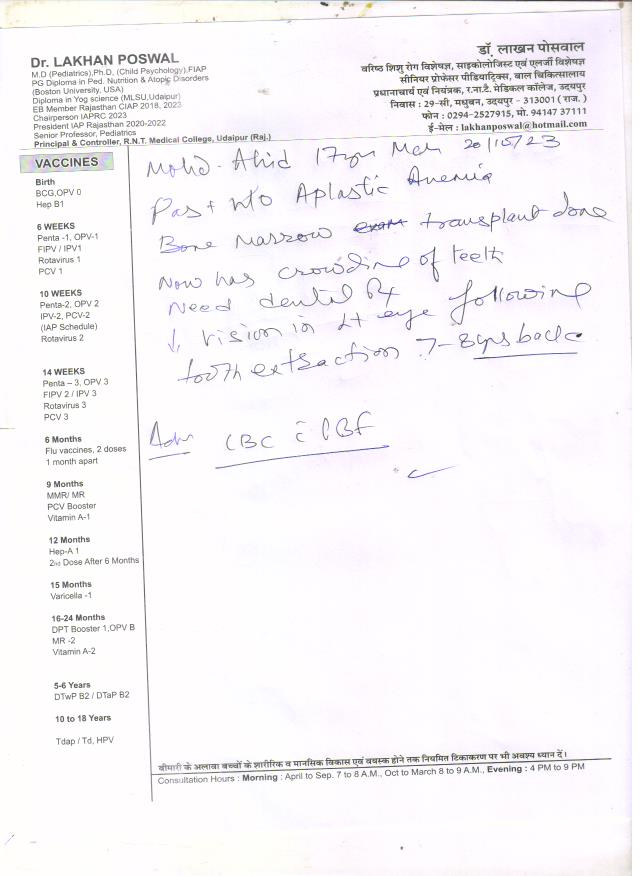 Dr. LAKHAN POSWAL
M.D (Pediatrics),Ph.D, (Child Psychology),FIAP
PG Diploma in Ped. Nutrition & Atopic Disorders
(Boston University, USA)
Diploma in Yog science (MLSU,Udaipur)
EB Member Rajasthan CIAP 2018, 2023
Chairperson IAPRC 2023
President IAP Rajasthan 2020-2022
Senior Professor, Pediatrics
Principal & Controller, R.N.T. Medical College, Udaipur (Raj.)
डॉ. लाखन पोसवाल
वरिष्ठ शिशु रोग विशेषज्ञ, साइकोलोजिस्ट एवं एलर्जी विशेषज्ञ
सीनियर प्रोफेसर पीडियाट्रिक्स, बाल चिकित्सालय
प्रधानाचार्य एवं नियंत्रक, र.ना.टै. मेडिकल कॉलेज, उदयपुर
निवास : 29-सी, मधुबन, उदयपुर - 313001 ( राज. )
फोन : 0294-2527915, मो. 94147 37111
ई-मेल : lakhanposwal@hotmail.com
VACCINES
Birth
BCG,OPV 0
Hep B1
6 WEEKS
Penta -1, OPV-1
FIPV / IPV1
Rotavirus 1
PCV 1
10 WEEKS
Penta-2, OPV 2
IPV-2, PCV-2
(IAP Schedule)
Rotavirus 2
14 WEEKS
Penta – 3, OPV 3
FIPV 2 / IPV 3
Rotavirus 3
PCV 3
6 Months
Flu vaccines, 2 doses
1 month apart
9 Months
MMR/ MR
PCV Booster
Vitamin A-1
12 Months
Hep-A 1
2nd Dose After 6 Months
15 Months
Varicella -1
16-24 Months
DPT Booster 1,OPV B
MR -2
Vitamin A-2
5-6 Years
DTwP B2 / DTaP B2
10 to 18 Years
Tdap / Td, HPV
Mohd. 17yr
Past H/O Aplastic Anemia
Bone Marrow transplant done
Now has crowding of teeth
Need dental Rx
↓ vision in Lt eye following
tooth extraction 7-8yrs back
Adv CBC c̄ PBF
बीमारी के अलावा बच्चों के शारीरिक व मानसिक विकास एवं वयस्क होने तक नियमित टिकाकरण पर भी अवश्य ध्यान दें।
Consultation Hours : Morning : April to Sep. 7 to 8 A.M., Oct to March 8 to 9 A.M., Evening : 4 PM to 9 PM